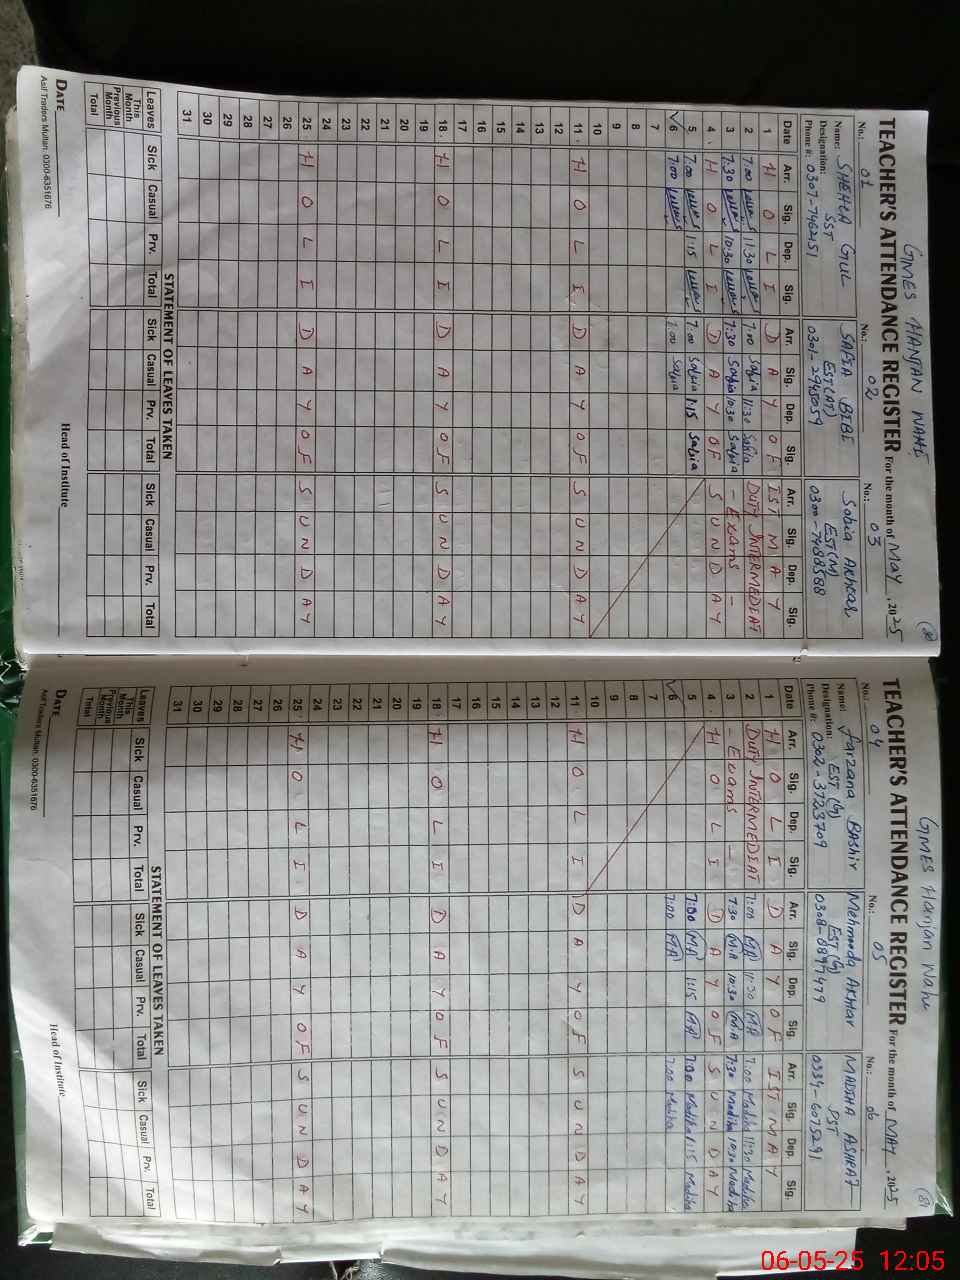 GMES HANJAN WAHE
TEACHER'S ATTENDANCE REGISTER For the month of May, 2025
No.: 01 No.: 02 No.: 03
Name: SHEHLA GUL SAFIA BIBE Sobia Akhtar
Designation: SST EST(AT) EST(M)
Phone #: 0307-7462151 0301-2945059 0300-7488588
Date Arr. Sig. Dep. Sig. Arr. Sig. Dep. Sig. Arr. Sig. Dep. Sig.
1 H O L I D A Y OF IST MAY
2 7:00 11:30 7:00 Safia 11:30 Safia DUTY INTERMEDIAT
3 7:30 10:30 7:30 Safia 10:30 Safia - Exams -
4 H O L I D A Y OF S U N D A Y
5 7:00 1:15 7:00 Safia 1:15 Safia
6 7:00 7:00 Safia
7
8
9
10
11 H O L I D A Y OF S U N D A Y
12
13
14
15
16
17
18 H O L I D A Y OF S U N D A Y
19
20
21
22
23
24
25 H O L I D A Y OF S U N D A Y
26
27
28
29
30
31
STATEMENT OF LEAVES TAKEN
Leaves Sick Casual Prv. Total Sick Casual Prv. Total Sick Casual Prv. Total
This Month
Previous Month
Total
DATE Head of Institute
Asif Traders Multan: 0300-6351676
GMES Hanjan Wahe
TEACHER'S ATTENDANCE REGISTER For the month of MAY, 2025
No.: 04 No.: 05 No.: 06
Name: Farzana Bashir Mehmooda Akhtar MADIHA ASHRAF
Designation: EST (G) EST (G) PST
Phone #: 0302-3723709 0308-8897479 0334-6075291
Date Arr. Sig. Dep. Sig. Arr. Sig. Dep. Sig. Arr. Sig. Dep. Sig.
1 H O L I D A Y OF IST MAY
2 DUTY INTERMEDIAT 7:00 MA 11:30 MA 7:00 Madiha 11:30 Madiha
3 - Exams - 7:30 M.A 10:30 M.A 7:30 Madiha 10:30 Madiha
4 H O L I D A Y OF S U N D A Y
5 7:00 MA 1:15 MA 7:00 Madiha 1:15 Madiha
6 7:00 MA 7:00 Madiha
7
8
9
10
11 H O L I D A Y OF S U N D A Y
12
13
14
15
16
17
18 H O L I D A Y OF S U N D A Y
19
20
21
22
23
24
25 H O L I D A Y OF S U N D A Y
26
27
28
29
30
31
STATEMENT OF LEAVES TAKEN
Leaves Sick Casual Prv. Total Sick Casual Prv. Total Sick Casual Prv. Total
This Month
Previous Month
Total
DATE Head of Institute
Asif Traders Multan: 0300-6351676
06-05-25 12:05